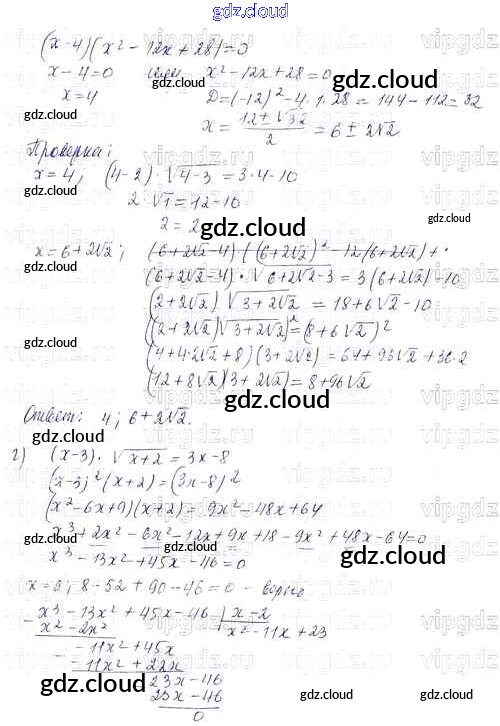 gdz.cloud
(x-4)(x² - 12x + 28) = 0
x - 4 = 0 или x² - 12x + 28 = 0
x = 4 D = (-12)² - 4·1·28 = 144 - 112 = 32
x = (12 ± √32)/2 = 6 ± 2√2
Проверка:
x = 4, (4-2)·√(4-3) = 3·4 - 10
2·√1 = 12 - 10
2 = 2
x = 6+2√2; (6+2√2-4)·((6+2√2)² - 12(6+2√2) +
(6+2√2-4)·√(6+2√2-3) = 3(6+2√2) - 10
(2+2√2)√(3+2√2) = 18+6√2-10
((2+2√2)√(3+2√2))² = (8+6√2)²
(4+4·2√2+8)(3+2√2) = 64+96√2+36·2
(12+8√2)(3+2√2) = 8+96√2
Ответ: 4; 6+2√2.
г) (x-3)·√(x+2) = 3x-8
(x-3)²(x+2) = (3x-8)²
(x²-6x+9)(x+2) = 9x²-48x+64
x³+2x²-6x²-12x+9x+18-9x²+48x-64=0
x³-13x²+45x-46=0
x=2; 8-52+90-46=0 - верно
x³-13x²+45x-46 | x-2
x²-2x² x²-11x+23
-11x²+45x
-11x²+22x
23x-46
23x-46
0
gdz.cloud